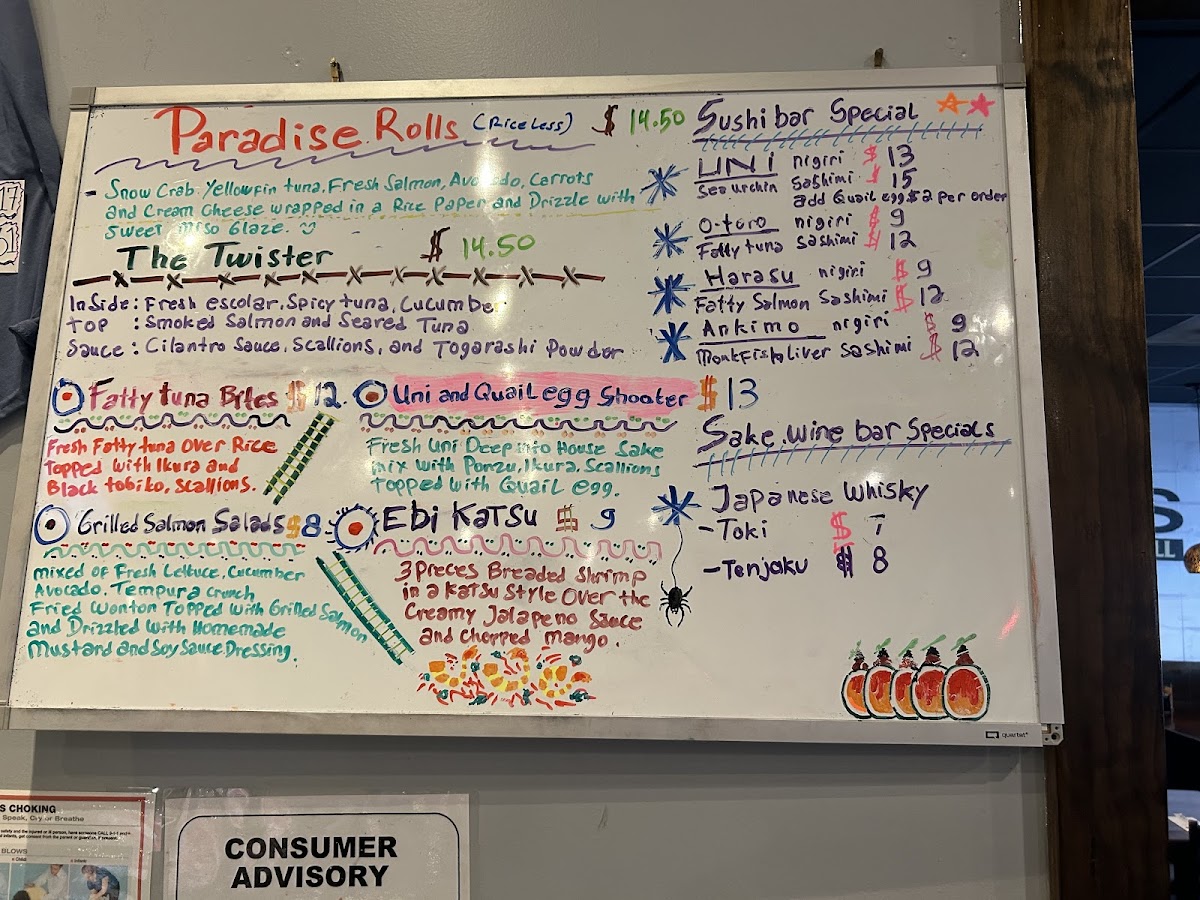 Paradise Rolls (Riceless) $ 14.50
- Snow Crab, Yellowfin tuna, Fresh Salmon, Avocado, Carrots
and Cream Cheese wrapped in a Rice Paper and Drizzle with
Sweet Miso Glaze.
The Twister $ 14.50
Inside: Fresh escolar, Spicy tuna, Cucumber
Top : Smoked Salmon and Seared Tuna
Sauce: Cilantro Sauce, Scallions, and Togarashi Powder
Fatty tuna Bites $ 12.
Fresh Fatty tuna over Rice
Topped with Ikura and
Black tobiko, Scallions.
Uni and Quail egg Shooter $ 13
Fresh Uni Deep into House Sake
mix with Ponzu, Ikura, Scallions
Topped with Quail egg.
Grilled Salmon Salads $ 8
mixed of Fresh Lettuce, Cucumber
Avocado, Tempura crunch
Fried Wonton Topped with Grilled Salmon
and Drizzled with Homemade
Mustard and Soy Sauce Dressing.
Ebi Katsu $ 9
3 pieces Breaded Shrimp
in a Katsu Style Over the
Creamy Jalapeno Sauce
and chopped mango.
Sushi bar Special
UNI nigiri $ 13
Sea urchin Sashimi $ 15
add Quail egg $2 per order
O-toro nigiri $ 9
Fatty tuna Sashimi $ 12
Harasu nigiri $ 9
Fatty Salmon Sashimi $ 12
Ankimo nigiri $ 9
Monkfish liver Sashimi $ 12
Sake, wine bar Specials
Japanese Whisky
- Toki $ 7
- Tenjaku $ 8
quartet
S CHOKING
Speak, Cry or Breathe
BLOWS
CONSUMER
ADVISORY
17
S
LL